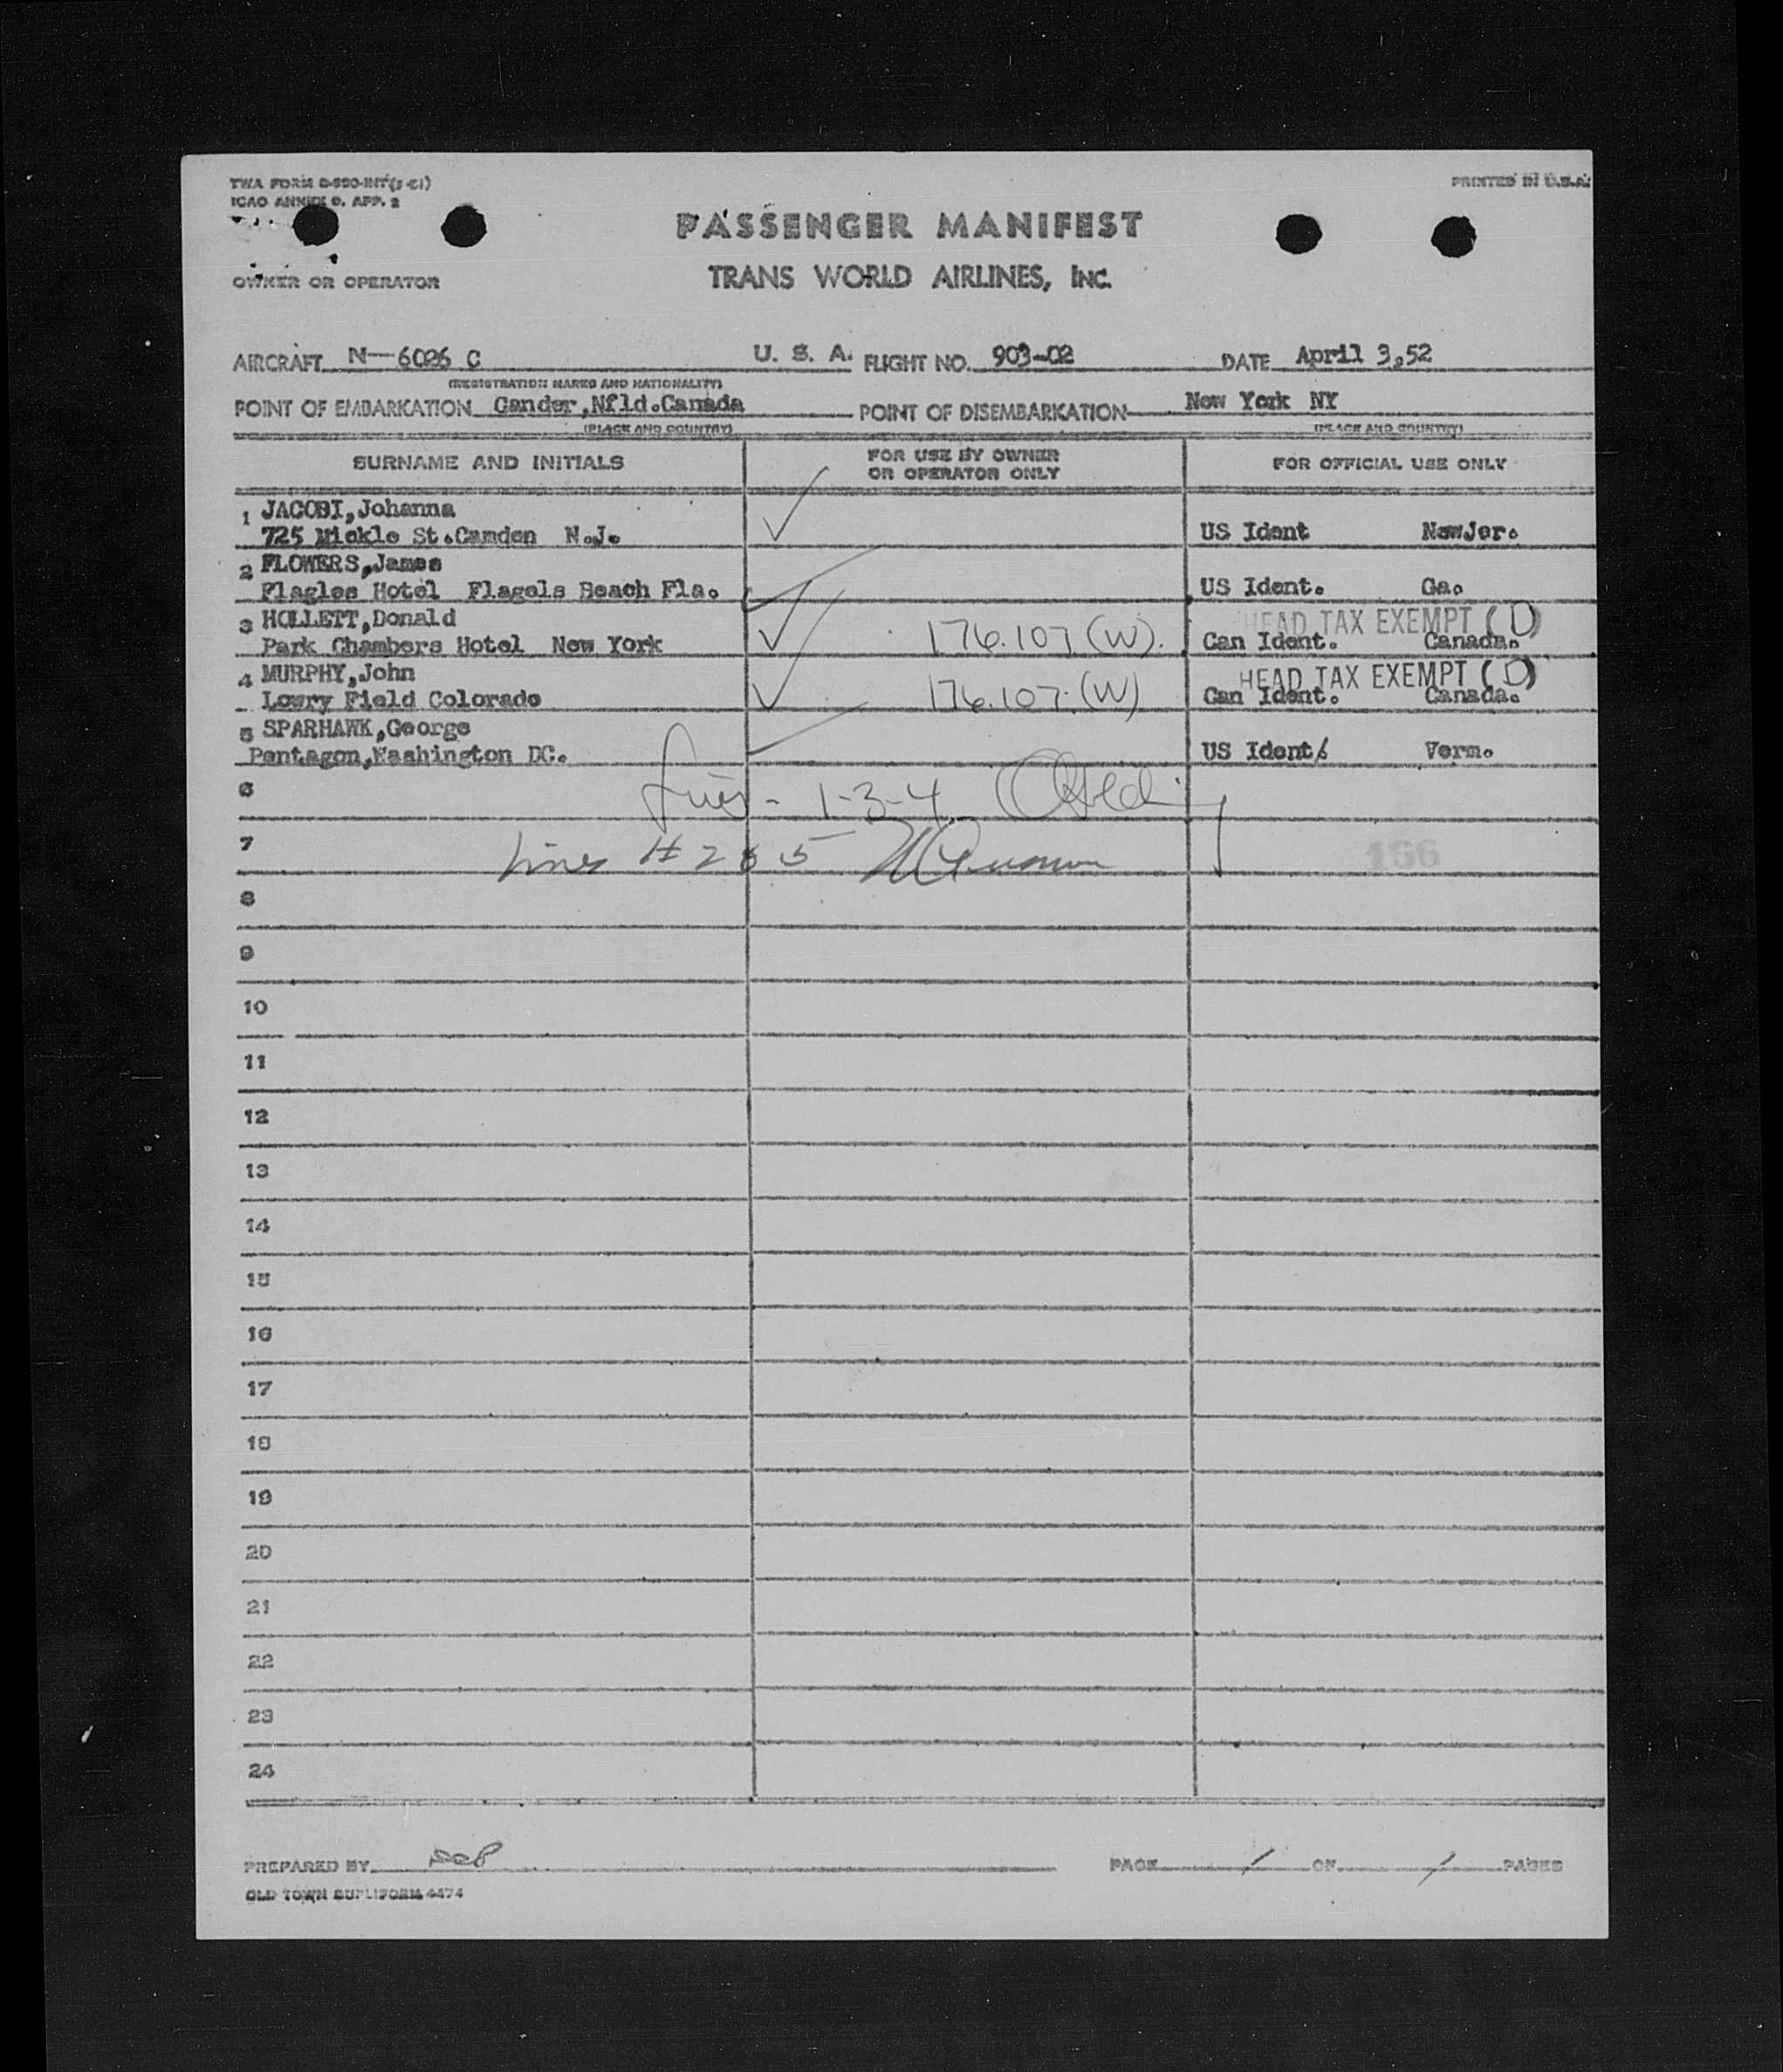 TWA FORM
ICAO ANNEX 9. APP. 2
PRINTED IN U.S.A.
PASSENGER MANIFEST
OWNER OR OPERATOR
TRANS WORLD AIRLINES, INC.
AIRCRAFT N-6026 C U. S. A. FLIGHT NO. 903-02 DATE April 3,52
(REGISTRATION MARKS AND NATIONALITY)
POINT OF EMBARKATION Gander,Nfld.Canada POINT OF DISEMBARKATION New York NY
(PLACE AND COUNTRY) (PLACE AND COUNTRY)
SURNAME AND INITIALS FOR USE BY OWNER OR OPERATOR ONLY FOR OFFICIAL USE ONLY
1 JACOBI,Johanna
725 Mickle St.Camden N.J. US Ident NewJer.
2 FLOWERS,James
Flagles Hotel Flagels Beach Fla. US Ident. Ga.
3 HOLLETT,Donald HEAD TAX EXEMPT (D)
Park Chambers Hotel New York 176.107 (W). Can Ident. Canada.
4 MURPHY,John HEAD TAX EXEMPT (D)
Lowry Field Colorado 176.107.(W) Can Ident. Canada.
5 SPARHAWK,George
Pentagon,Washington DC. US Ident Verm.
6 1-3-4
7 Lines # 2 & 5 166
8
9
10
11
12
13
14
15
16
17
18
19
20
21
22
23
24
PREPARED BY PAGE 1 OF 1 PAGES
OLD TOWN 4474